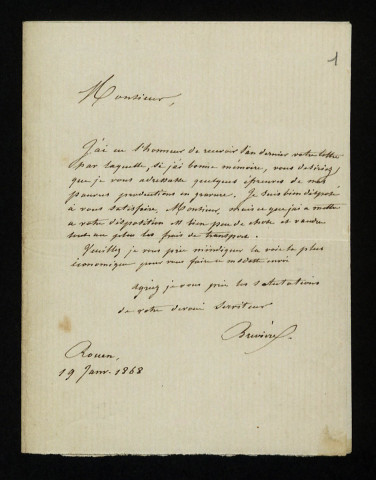 1
Monsieur,
J'ai eu l'honneur de recevoir l'an dernier votre lettre
par laquelle, si j'ai bonne mémoire, vous désiriez
que je vous adressasse quelques épreuves de mes
pauvres productions en gravure. Je suis bien disposé
à vous satisfaire, Monsieur, mais ce que j'ai à mettre
à votre disposition est bien peu de chose et vaudra
tout au plus les frais de transport.
Veuillez je vous prie m'indiquer la voie la plus
économique pour vous faire ce modeste envoi
Agréez je vous prie les salutations
de votre dévoué serviteur
Brevière.
Rouen,
19 Janv. 1868